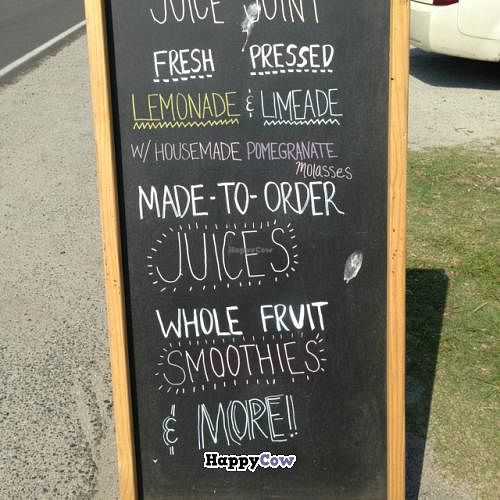 JUICE JOINT
FRESH PRESSED
LEMONADE & LIMEADE
W/ HOUSEMADE POMEGRANATE
MOlASSES
MADE-TO-ORDER
JUICES
HappyCow
WHOLE FRUIT
SMOOTHIES
& MORE!!
HappyCow